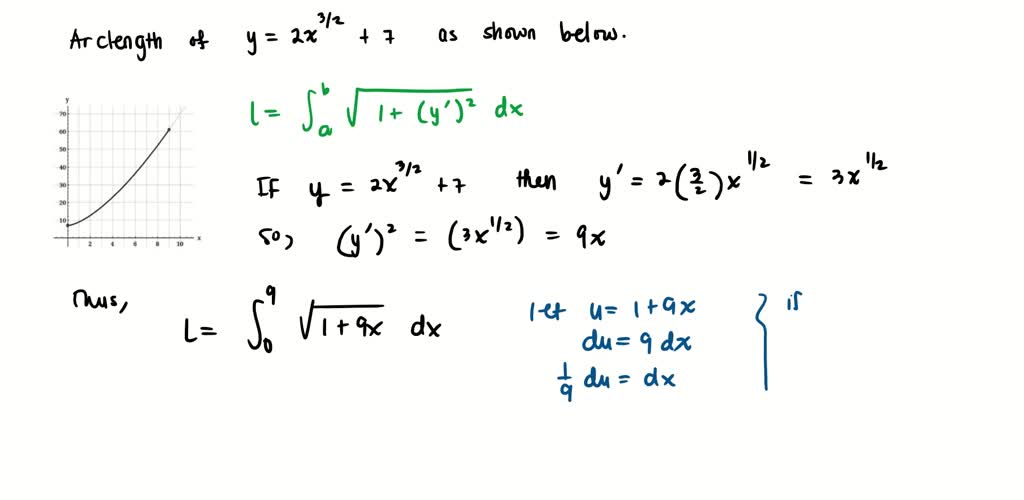 Arclength of y = 2x^{3/2} + 7 as shown below.
L = ∫_a^b √(1 + (y')²) dx
If y = 2x^{3/2} + 7 then y' = 2(3/2)x^{1/2} = 3x^{1/2}
so, (y')² = (3x^{1/2}) = 9x
Thus,
L = ∫_0^9 √(1 + 9x) dx
let u = 1 + 9x
du = 9 dx
1/9 du = dx
} if
y
70
60
50
40
30
20
10
2 4 6 8 10 x